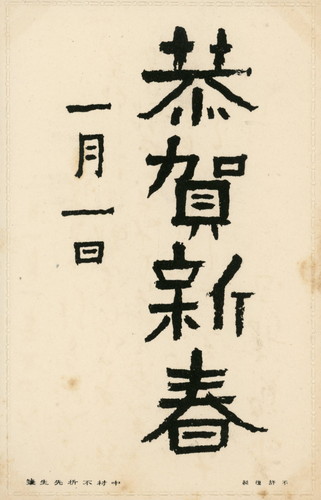 恭賀新春
一月一日
不許複製
中村不折先生筆